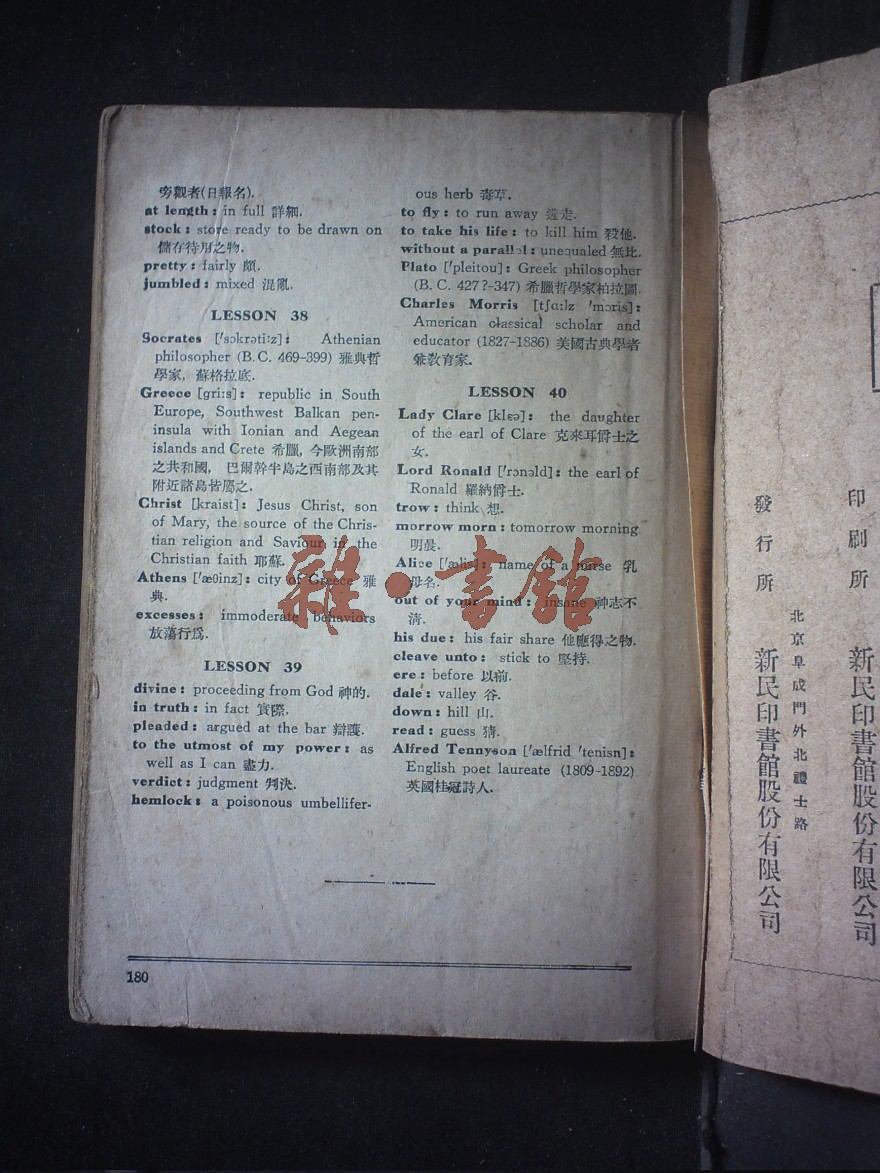 旁觀者(日報名).
at length: in full 詳細.
stock: store ready to be drawn on
儲存待用之物.
pretty: fairly 頗.
jumbled: mixed 混亂.
LESSON 38
Socrates ['sɔkrəti:z]: Athenian
philosopher (B.C. 469-399) 雅典哲
學家, 蘇格拉底.
Greece [gri:s]: republic in South
Europe, Southwest Balkan pen-
insula with Ionian and Aegean
islands and Crete 希臘, 今歐洲南部
之共和國, 巴爾幹半島之西南部及其
附近諸島皆屬之.
Christ [kraist]: Jesus Christ, son
of Mary, the source of the Chris-
tian religion and Saviour in the
Christian faith 耶蘇.
Athens ['æθinz]: city of Greece 雅
典.
excesses: immoderate behaviors
放蕩行爲.
LESSON 39
divine: proceeding from God 神的.
in truth: in fact 實際.
pleaded: argued at the bar 辯護.
to the utmost of my power: as
well as I can 盡力.
verdict: judgment 判決.
hemlock: a poisonous umbellifer-
ous herb 毒草.
to fly: to run away 逃走.
to take his life: to kill him 殺他.
without a parallel: unequaled 無比.
Plato ['pleitou]: Greek philosopher
(B. C. 427?-347) 希臘哲學家柏拉圖.
Charles Morris [tʃɑ:lz 'mɔris]:
American classical scholar and
educator (1827-1886) 美國古典學者
兼敎育家.
LESSON 40
Lady Clare [klɛə]: the daughter
of the earl of Clare 克來耳爵士之
女.
Lord Ronald ['rɔnəld]: the earl of
Ronald 羅納爵士.
trow: think 想.
morrow morn: tomorrow morning
明晨.
Alice ['ælis]: name of a nurse 乳
母名.
out of your mind: insane 神志不
清.
his due: his fair share 他應得之物.
cleave unto: stick to 堅持.
ere: before 以前.
dale: valley 谷.
down: hill 山.
read: guess 猜.
Alfred Tennyson ['ælfrid 'tenisn]:
English poet laureate (1809-1892)
英國桂冠詩人.
180
雜·書館
印刷所 新民印書館股份有限公司
北京阜成門外北禮士路
發行所 新民印書館股份有限公司